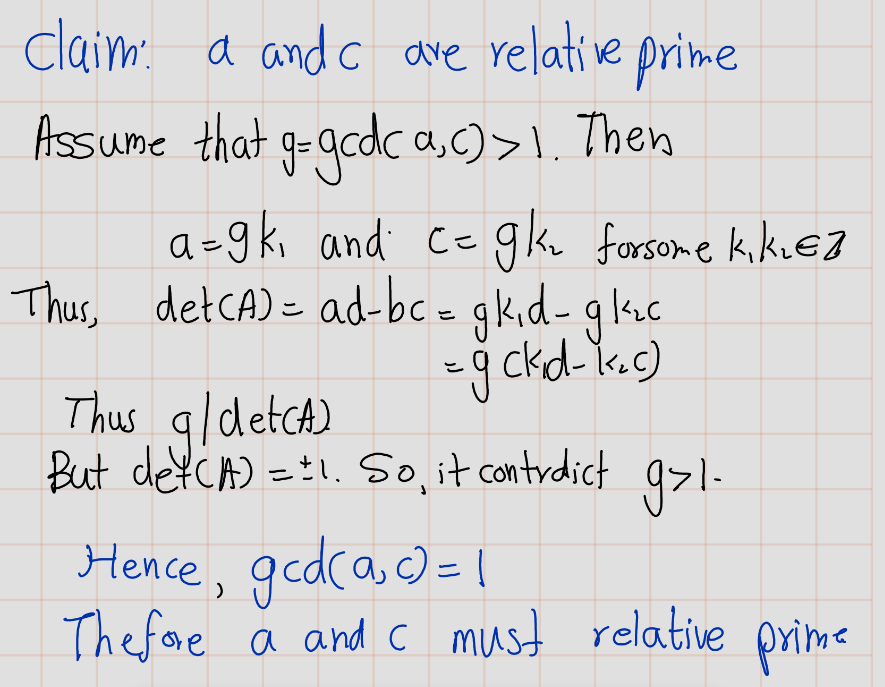 Claim: a and c are relative prime
Assume that g=gcd(a,c)>1. Then
a=gk₁ and c=gk₂ forsome k₁k₂∈Z
Thus, det(A)=ad-bc=gk₁d-gk₂c
=g(k₁d-k₂c)
Thus g/det(A)
But det(A)=±1. So, it contrdict g>1.
Hence, gcd(a,c)=1
Thefore a and c must relative prime